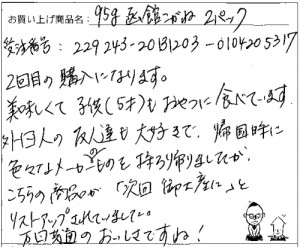 お買い上げ商品名: 95g 函館こがね 2パック
受注番号: 229243-20131203-0104205317
2回目の購入になります。
美味しくて子供(5才)もおやつに食べています。
外国人の友人達も大好きで、帰国時に
色々なメーカーのものを持ち帰りましたが、
こちらの商品が「次回御土産に」と
リストアップされていました。
万国共通のおいしさですね!